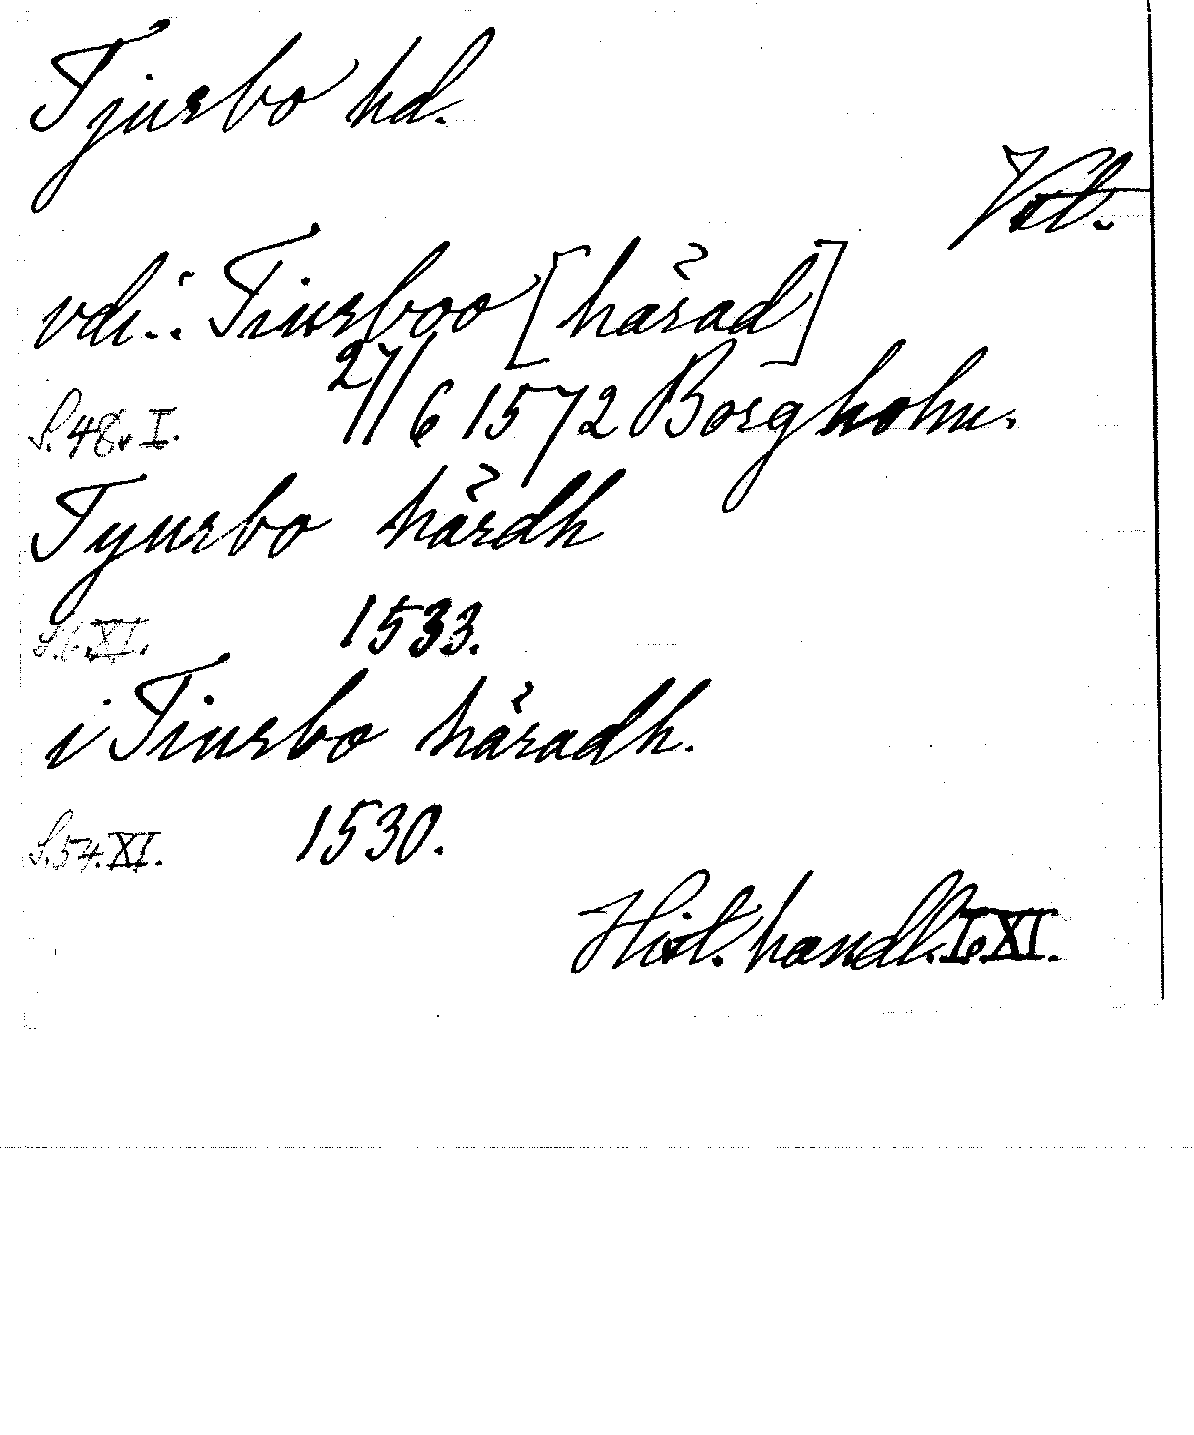 Tjurbo hd.
Vstl.
vdi: Tiurboo [härad]
S. 48. I. 27/6 1572 Borgholm.
Tyurbo härdh
S. 6. XI. 1533.
i Tiurbo häradh.
S. 54. XI. 1530.
Hist. handl. I. XI.